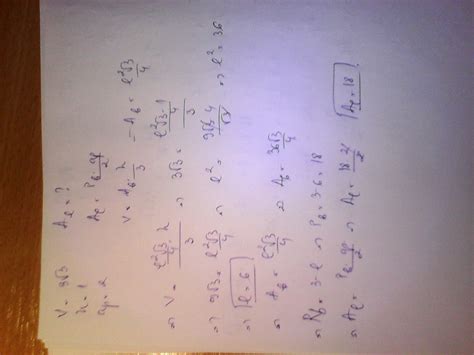 V = 3√3 Al = ?
h = 1 Al = Pb·ap/2
ap = 2 V = Ab·h/3 → Ab = l²√3/4
⇒ V = (l²√3/4 · h)/3 ⇒ 3√3 = (l²√3/4 · 1)/3
⇒ 9√3 = l²√3/4 ⇒ l² = 9√3·4/√3 ⇒ l² = 36
⇒ l = 6
⇒ Ab = l²√3/4 ⇒ Ab = 36√3/4
⇒ Pb = 3·l ⇒ Pb = 3·6 = 18
⇒ Al = Pb·ap/2 ⇒ Al = 18·2/2 Al = 18